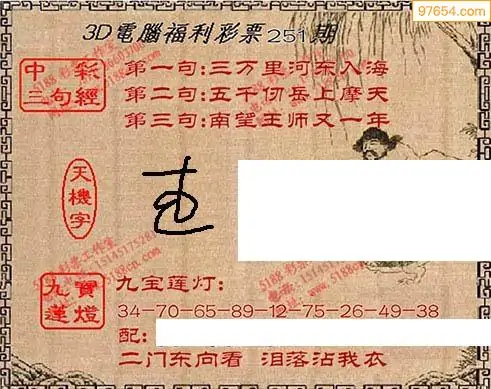 97654.com
3D電腦福利彩票251期
中彩三句經
第一句:三万里河东入海
第二句:五千仞岳上摩天
第三句:南望王师又一年
天機字
九寶蓮燈
九宝莲灯:
34-70-65-89-12-75-26-49-38
配:
二门东向看 泪落沾我衣